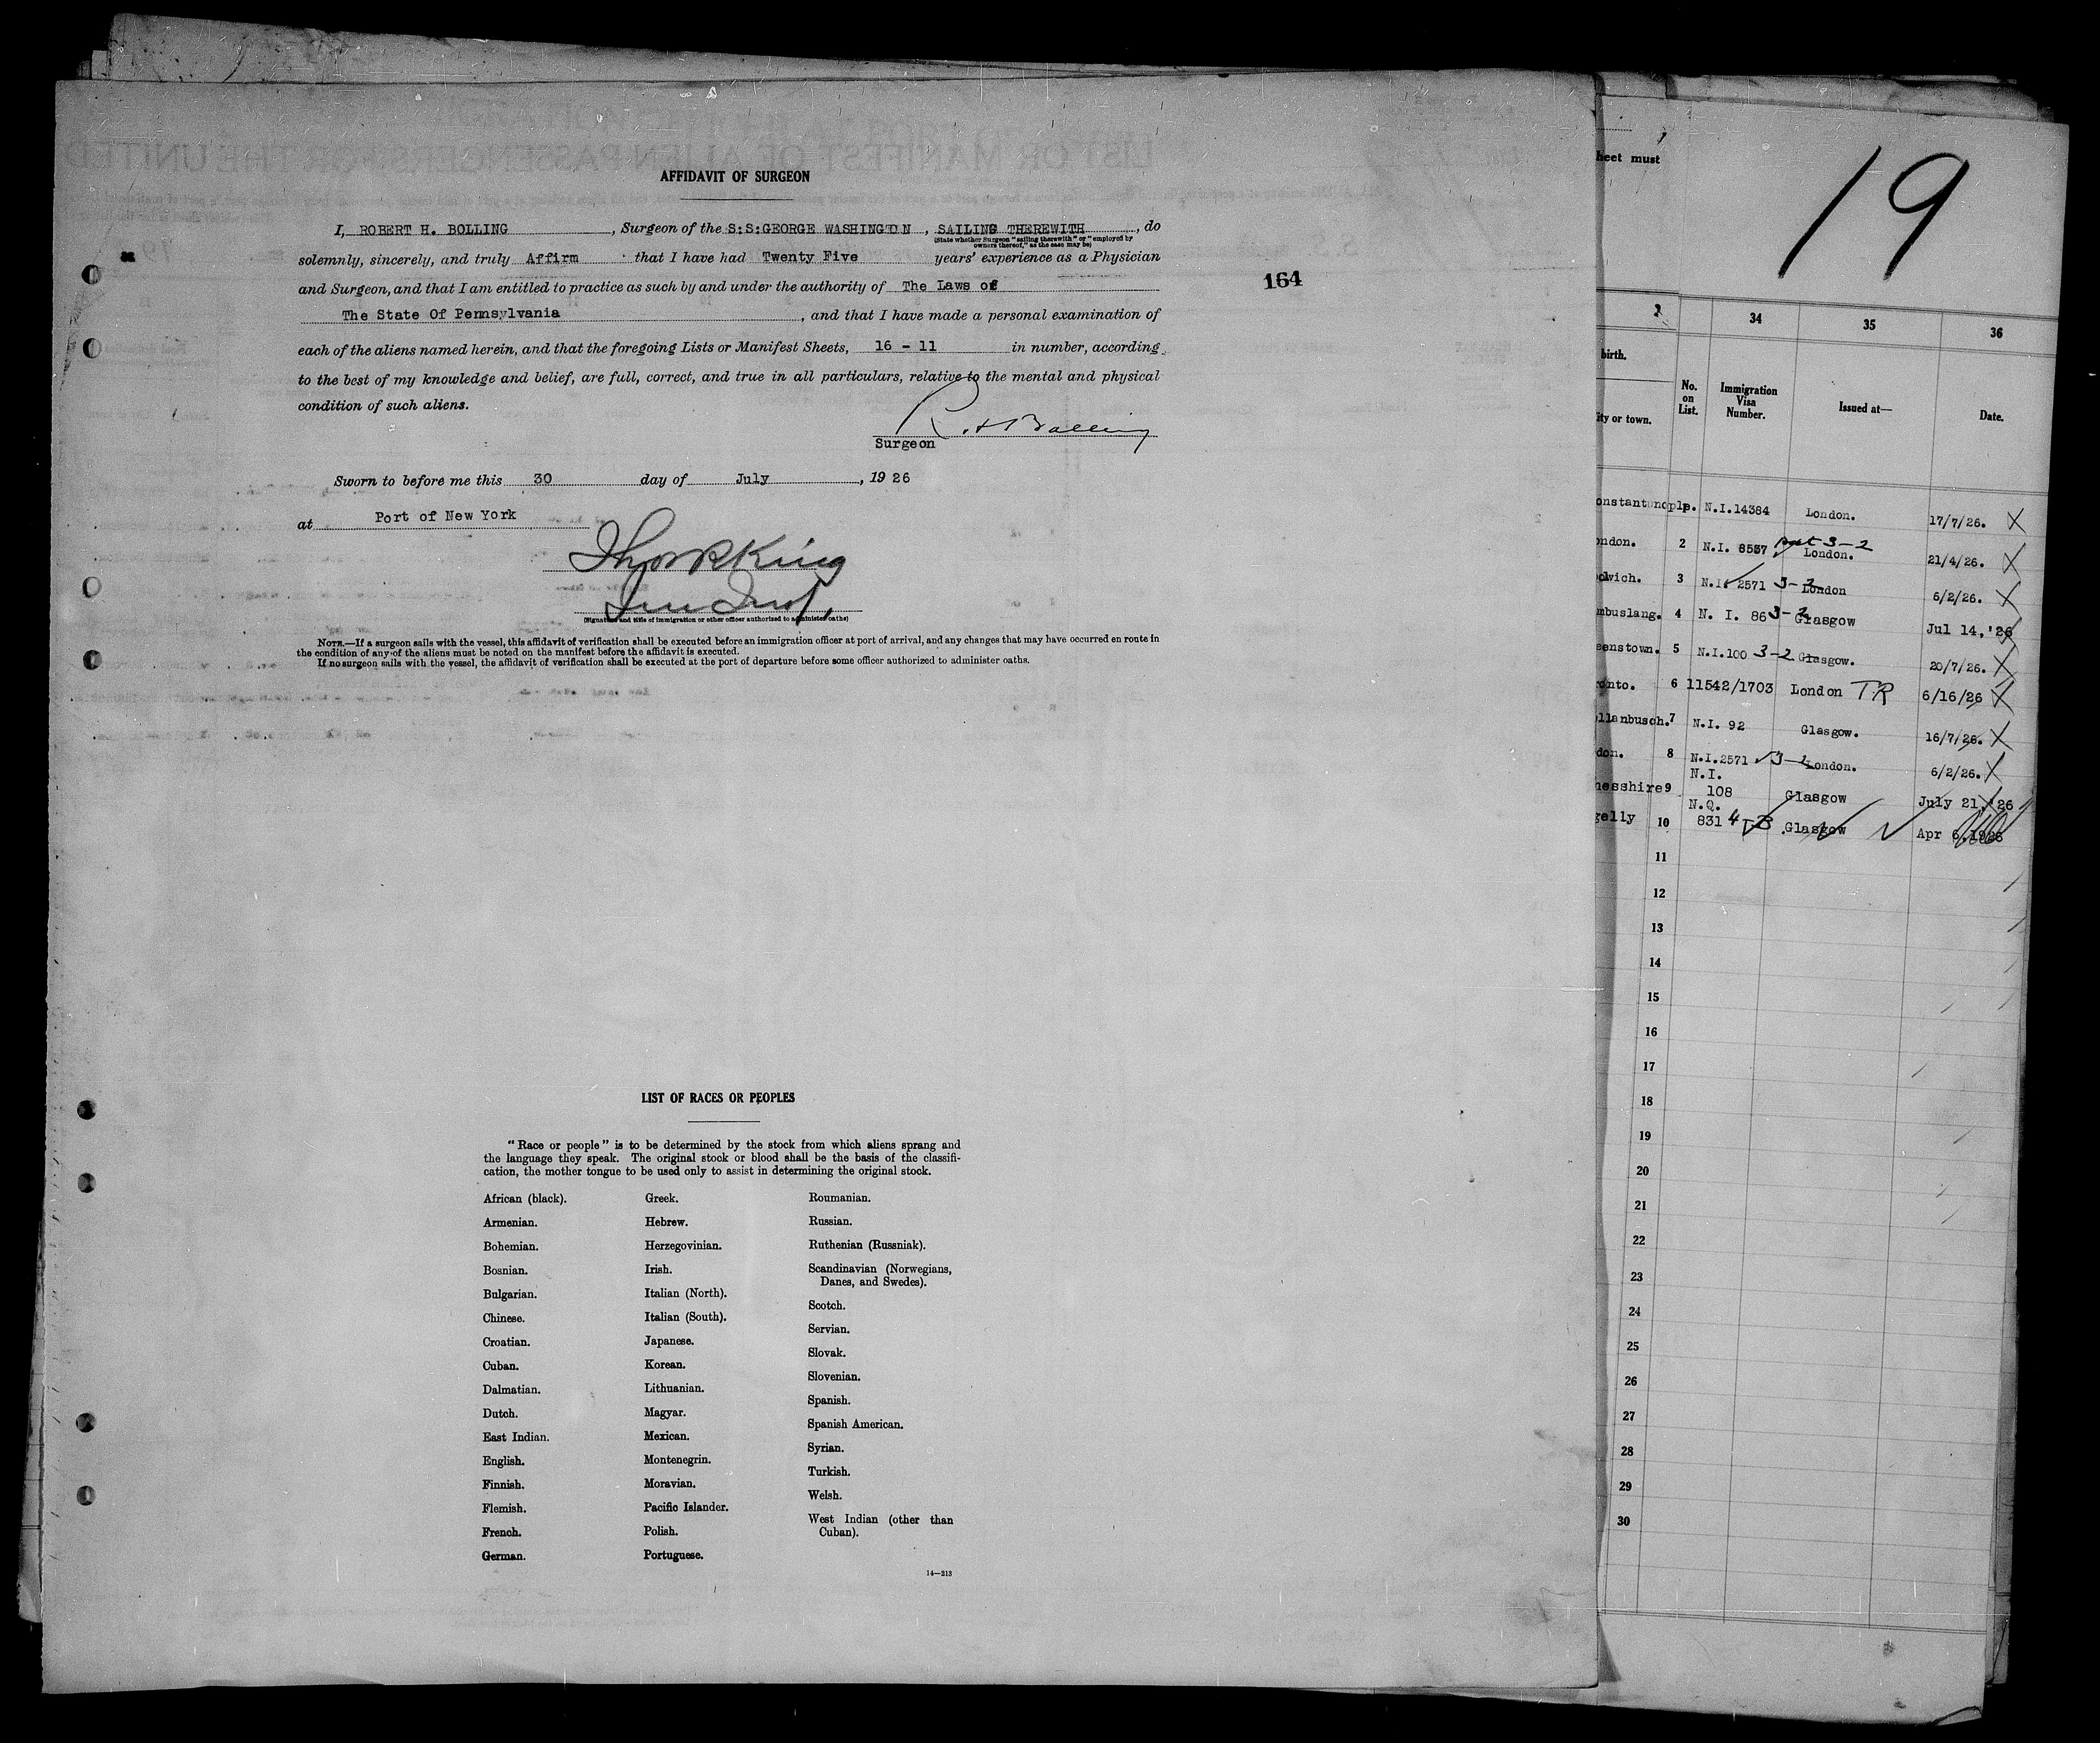 AFFIDAVIT OF SURGEON
I, ROBERT H. BOLLING, Surgeon of the S:S:GEORGE WASHINGTON, SAILING THEREWITH, do
(State whether Surgeon "sailing therewith" or "employed by
owners thereof," as the case may be)
solemnly, sincerely, and truly Affirm that I have had Twenty Five years' experience as a Physician
and Surgeon, and that I am entitled to practice as such by and under the authority of The Laws of
The State Of Pennsylvania, and that I have made a personal examination of
each of the aliens named herein, and that the foregoing Lists or Manifest Sheets, 16 - 11 in number, according
to the best of my knowledge and belief, are full, correct, and true in all particulars, relative to the mental and physical
condition of such aliens.
R. H Bolling
Surgeon
Sworn to before me this 30 day of July, 19 26
at Port of New York
King
(Signature and title of immigration or other officer authorized to administer oaths)
NOTE.—If a surgeon sails with the vessel, this affidavit of verification shall be executed before an immigration officer at port of arrival, and any changes that may have occurred en route in
the condition of any of the aliens must be noted on the manifest before the affidavit is executed.
If no surgeon sails with the vessel, the affidavit of verification shall be executed at the port of departure before some officer authorized to administer oaths.
164
LIST OF RACES OR PEOPLES
"Race or people" is to be determined by the stock from which aliens sprang and
the language they speak. The original stock or blood shall be the basis of the classifi-
cation, the mother tongue to be used only to assist in determining the original stock.
African (black).
Armenian.
Bohemian.
Bosnian.
Bulgarian.
Chinese.
Croatian.
Cuban.
Dalmatian.
Dutch.
East Indian.
English.
Finnish.
Flemish.
French.
German.
Greek.
Hebrew.
Herzegovinian.
Irish.
Italian (North).
Italian (South).
Japanese.
Korean.
Lithuanian.
Magyar.
Mexican.
Montenegrin.
Moravian.
Pacific Islander.
Polish.
Portuguese.
Roumanian.
Russian.
Ruthenian (Russniak).
Scandinavian (Norwegians,
Danes, and Swedes).
Scotch.
Servian.
Slovak.
Slovenian.
Spanish.
Spanish American.
Syrian.
Turkish.
Welsh.
West Indian (other than
Cuban).
14—213
heet must
19
34 35 36
birth.
ity or town.
No.
on
List.
Immigration
Visa
Number.
Issued at—
Date.
onstantinople. N.I.14384 London. 17/7/26. X
ondon. 2 N.I. 8537 3-2 London. 21/4/26. X
olwich. 3 N.I. 2571 3-2 London 6/2/26. X
mbuslang. 4 N. I. 86 3-2 Glasgow Jul 14,'26
eenstown. 5 N.I.100 3-2 Glasgow. 20/7/26. X
ronto. 6 11542/1703 London T.R 6/16/26 X
llanbusch. 7 N.I. 92 Glasgow. 16/7/26. X
don. 8 N.I.2571 3-2 London. 6/2/26. X
nesshire 9 N.I. 108 Glasgow July 21,'26
gelly 10 N.Q. 831 Glasgow Apr 6,1926
11
12
13
14
15
16
17
18
19
20
21
22
23
24
25
26
27
28
29
30